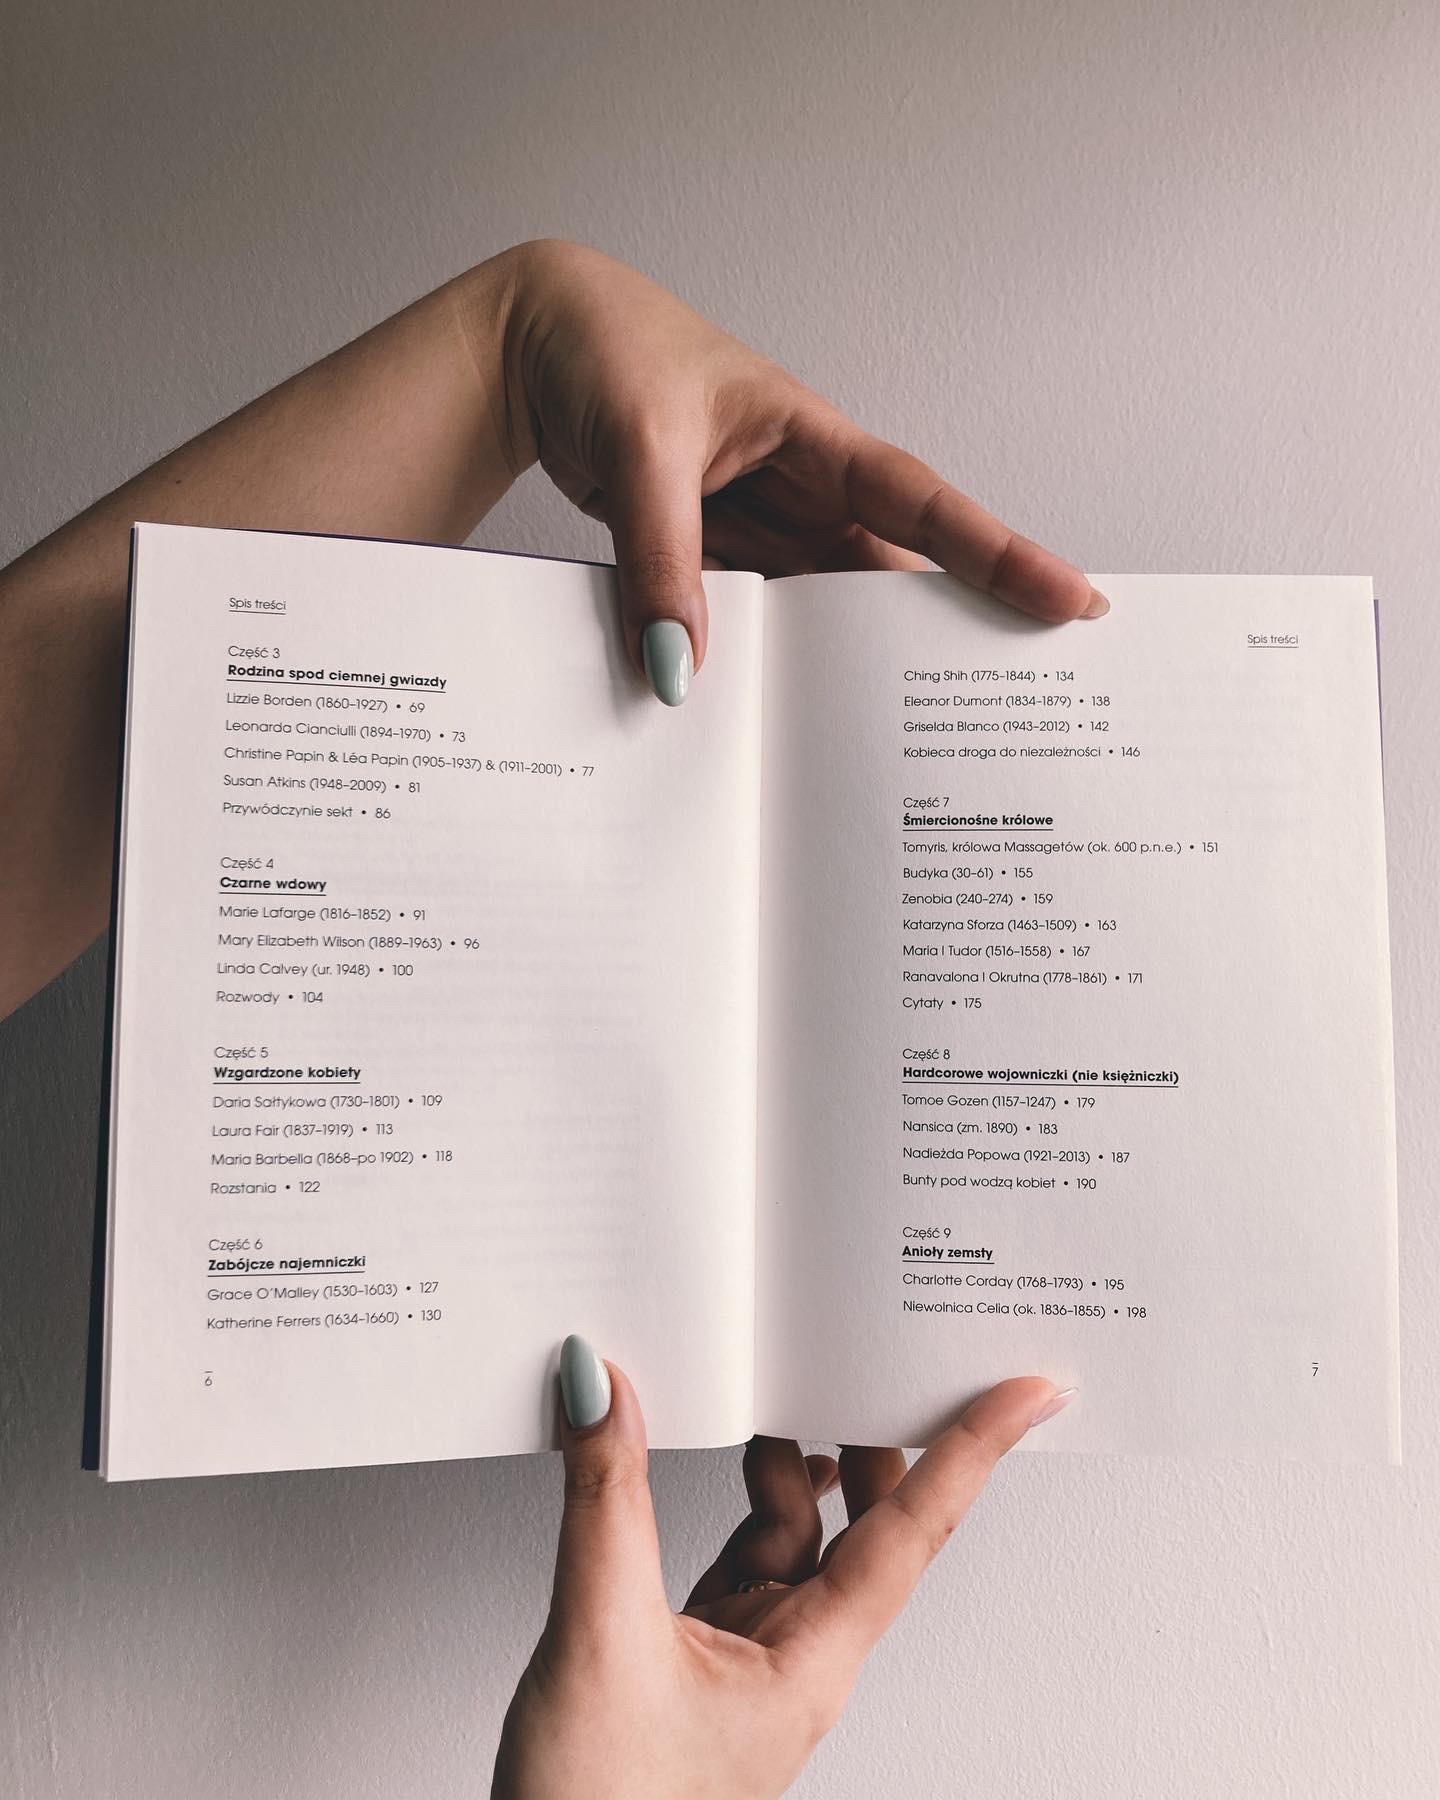 Spis treści
Część 3
Rodzina spod ciemnej gwiazdy
Lizzie Borden (1860–1927) • 69
Leonarda Cianciulli (1894–1970) • 73
Christine Papin & Léa Papin (1905–1937) & (1911–2001) • 77
Susan Atkins (1948–2009) • 81
Przywódczynie sekt • 86
Część 4
Czarne wdowy
Marie Lafarge (1816–1852) • 91
Mary Elizabeth Wilson (1889–1963) • 96
Linda Calvey (ur. 1948) • 100
Rozwody • 104
Część 5
Wzgardzone kobiety
Daria Sałtykowa (1730–1801) • 109
Laura Fair (1837–1919) • 113
Maria Barbella (1868–po 1902) • 118
Rozstania • 122
Część 6
Zabójcze najemniczki
Grace O'Malley (1530–1603) • 127
Katherine Ferrers (1634–1660) • 130
6
Spis treści
Ching Shih (1775–1844) • 134
Eleanor Dumont (1834–1879) • 138
Griselda Blanco (1943–2012) • 142
Kobieca droga do niezależności • 146
Część 7
Śmiercionośne królowe
Tomyris, królowa Massagetów (ok. 600 p.n.e.) • 151
Budyka (30–61) • 155
Zenobia (240–274) • 159
Katarzyna Sforza (1463–1509) • 163
Maria I Tudor (1516–1558) • 167
Ranavalona I Okrutna (1778–1861) • 171
Cytaty • 175
Część 8
Hardcorowe wojowniczki (nie księżniczki)
Tomoe Gozen (1157–1247) • 179
Nansica (zm. 1890) • 183
Nadieżda Popowa (1921–2013) • 187
Bunty pod wodzą kobiet • 190
Część 9
Anioły zemsty
Charlotte Corday (1768–1793) • 195
Niewolnica Celia (ok. 1836–1855) • 198
7